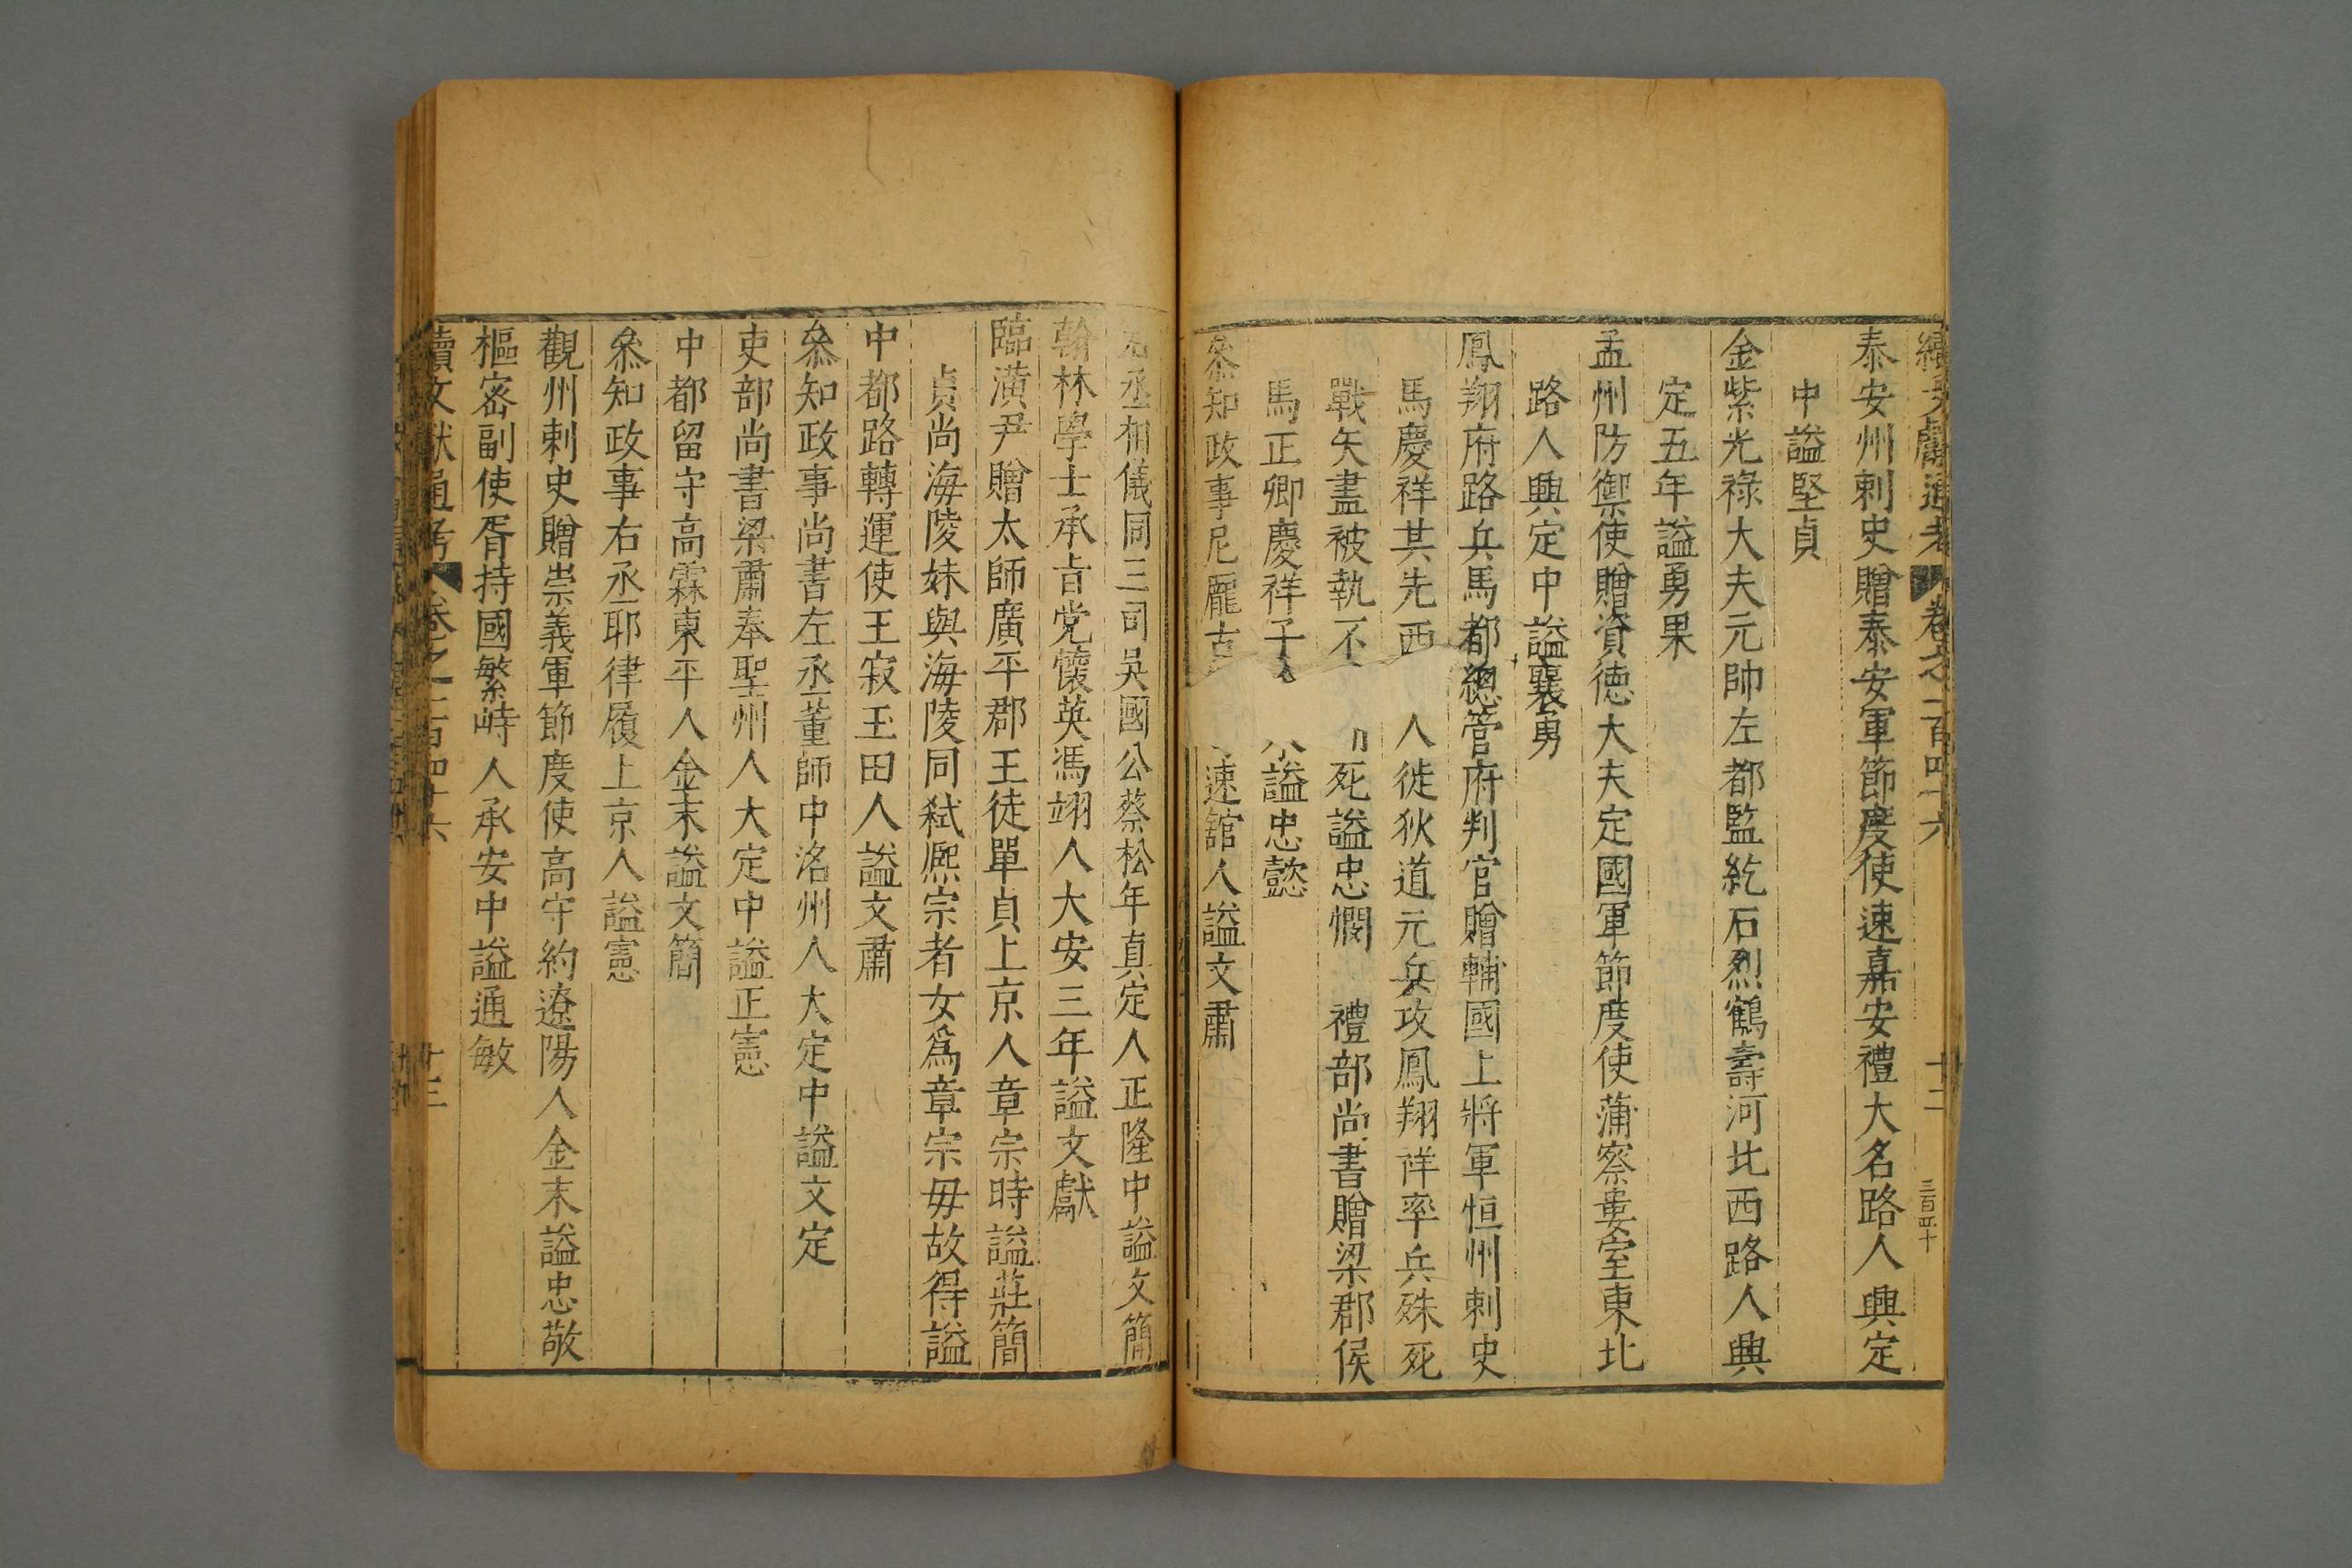 續文獻通考 卷之二百四十六 十二 三百四十
泰安州刺史贈泰安軍節度使速嘉安禮大名路人興定
中謚堅貞
金紫光祿大夫元帥左都監紇石烈鶴壽河北西路人興
定五年謚勇果
孟州防禦使贈資德大夫定國軍節度使蒲察婁室東北
路人興定中謚襄勇
鳳翔府路兵馬都總管府判官贈輔國上將軍恒州刺史
馬慶祥其先西 人徙狄道元兵攻鳳翔祥率兵殊死
戰矢盡被執不 死謚忠愍 禮部尚書贈梁郡侯
馬正卿慶祥子 謚忠懿
叅知政事尼龎古 速舘人謚文肅
右丞相儀同三司吳國公蔡松年真定人正隆中謚文簡
翰林學士承旨党懷英馮翊人大安三年謚文獻
臨潢尹贈太師廣平郡王徒單貞上京人章宗時謚莊簡
貞尚海陵妹與海陵同弒熈宗者女爲章宗毋故得謚
中都路轉運使王寂玉田人謚文肅
叅知政事尚書左丞董師中洺州人大定中謚文定
吏部尚書梁肅奉聖州人大定中謚正憲
中都留守高霖東平人金末謚文簡
叅知政事右丞耶律履上京人謚憲
觀州刺史贈崇義軍節度使高守約遼陽人金末謚忠敬
樞密副使胥持國繁峙人承安中謚通敏
續文獻通考 卷之二百四十六 十三